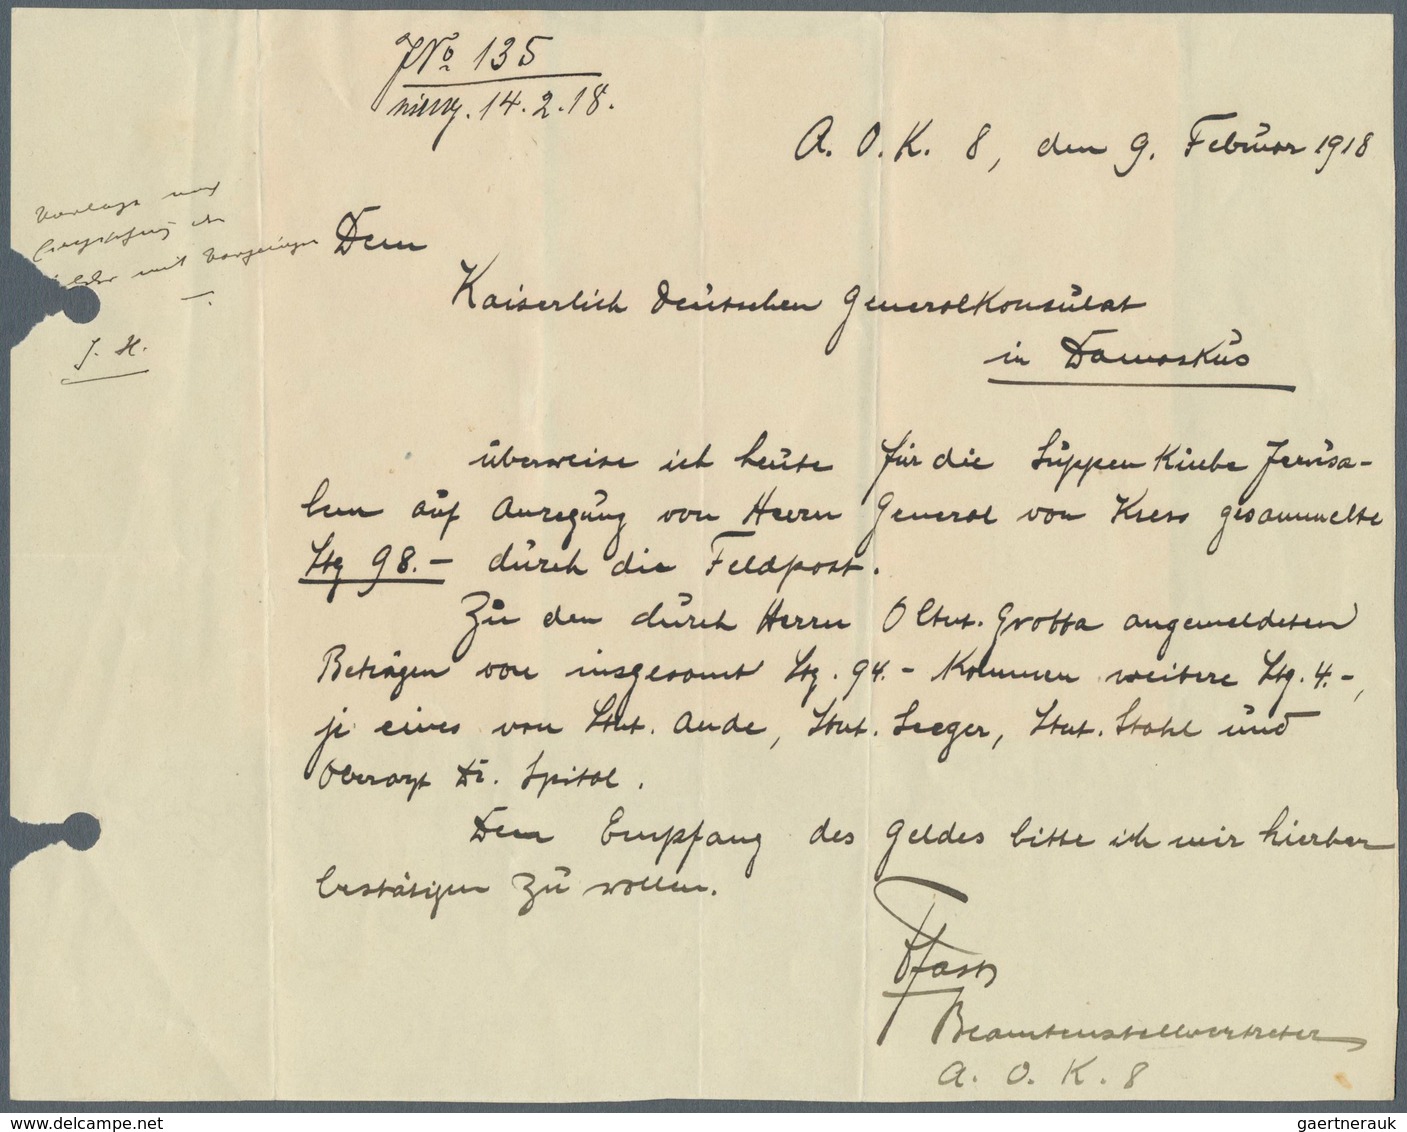 JNo 135
14.2.18.
A. O. K. 8, den 9. Februar 1918
mit
J. H.
Dem
Kaiserlich Deutschen Generalkonsulat
in Damaskus
überweise ich heute für die Suppenküche Jerusa-
lem auf Anregung von Herrn General von Kress gesammelte
Ltq 98.- durch die Feldpost.
Zu den durch Herrn Oltnt. Grobba angemeldeten
Beträgen von insgesamt Ltq. 94.- kommen weitere Ltq. 4.-,
je eines von Ltnt. Aude, Ltnt. Seeger, Ltnt. Stahl und
Oberarzt Dr. Spital.
Den Empfang des Geldes bitte ich mir hierher
bestätigen zu wollen.
Beamtenstellvertreter
A. O. K. 8
gaertnerauk